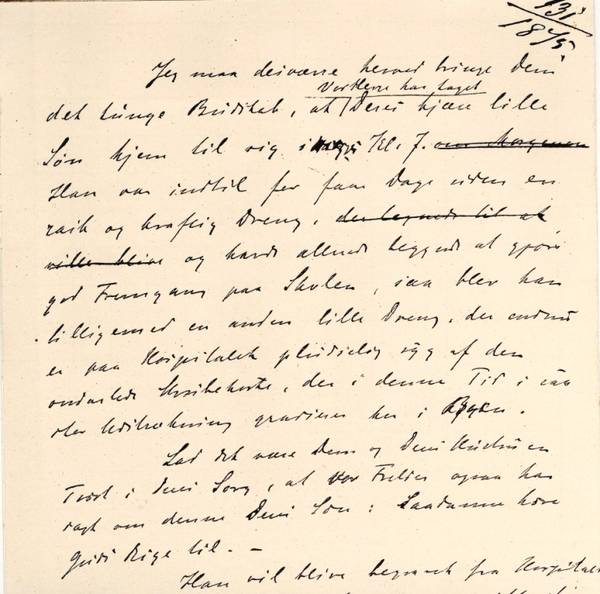 13/1
1875.
Jeg maa desværre herved bringe Dem
Vor Herre har taget
det tunge Budskab, at Deres kjære lille
Søn hjem til sig i Kl. 7. om Morgenen
Han var indtil for faa Dage siden en
rask og kraftig Dreng, der legnede til at
ville blive og havde allerede begyndt at gjøre
god Fremgang paa Skolen, saa blev han
tilligemed en anden lille Dreng, der endnu
er paa Hospitalet pludselig syg af den
ondartede Strubehoste, der i denne Tid i saa
stor Udstrækning grasserer her i Byen.
Lad det være Dem og Deres Hustru en
Trøst i Deres Sorg, at vor Frelser ogsaa har
sagt om denne Deres Søn: Saadanne høre
Guds Rige til. –
Han vil blive begravet fra Hospitalet